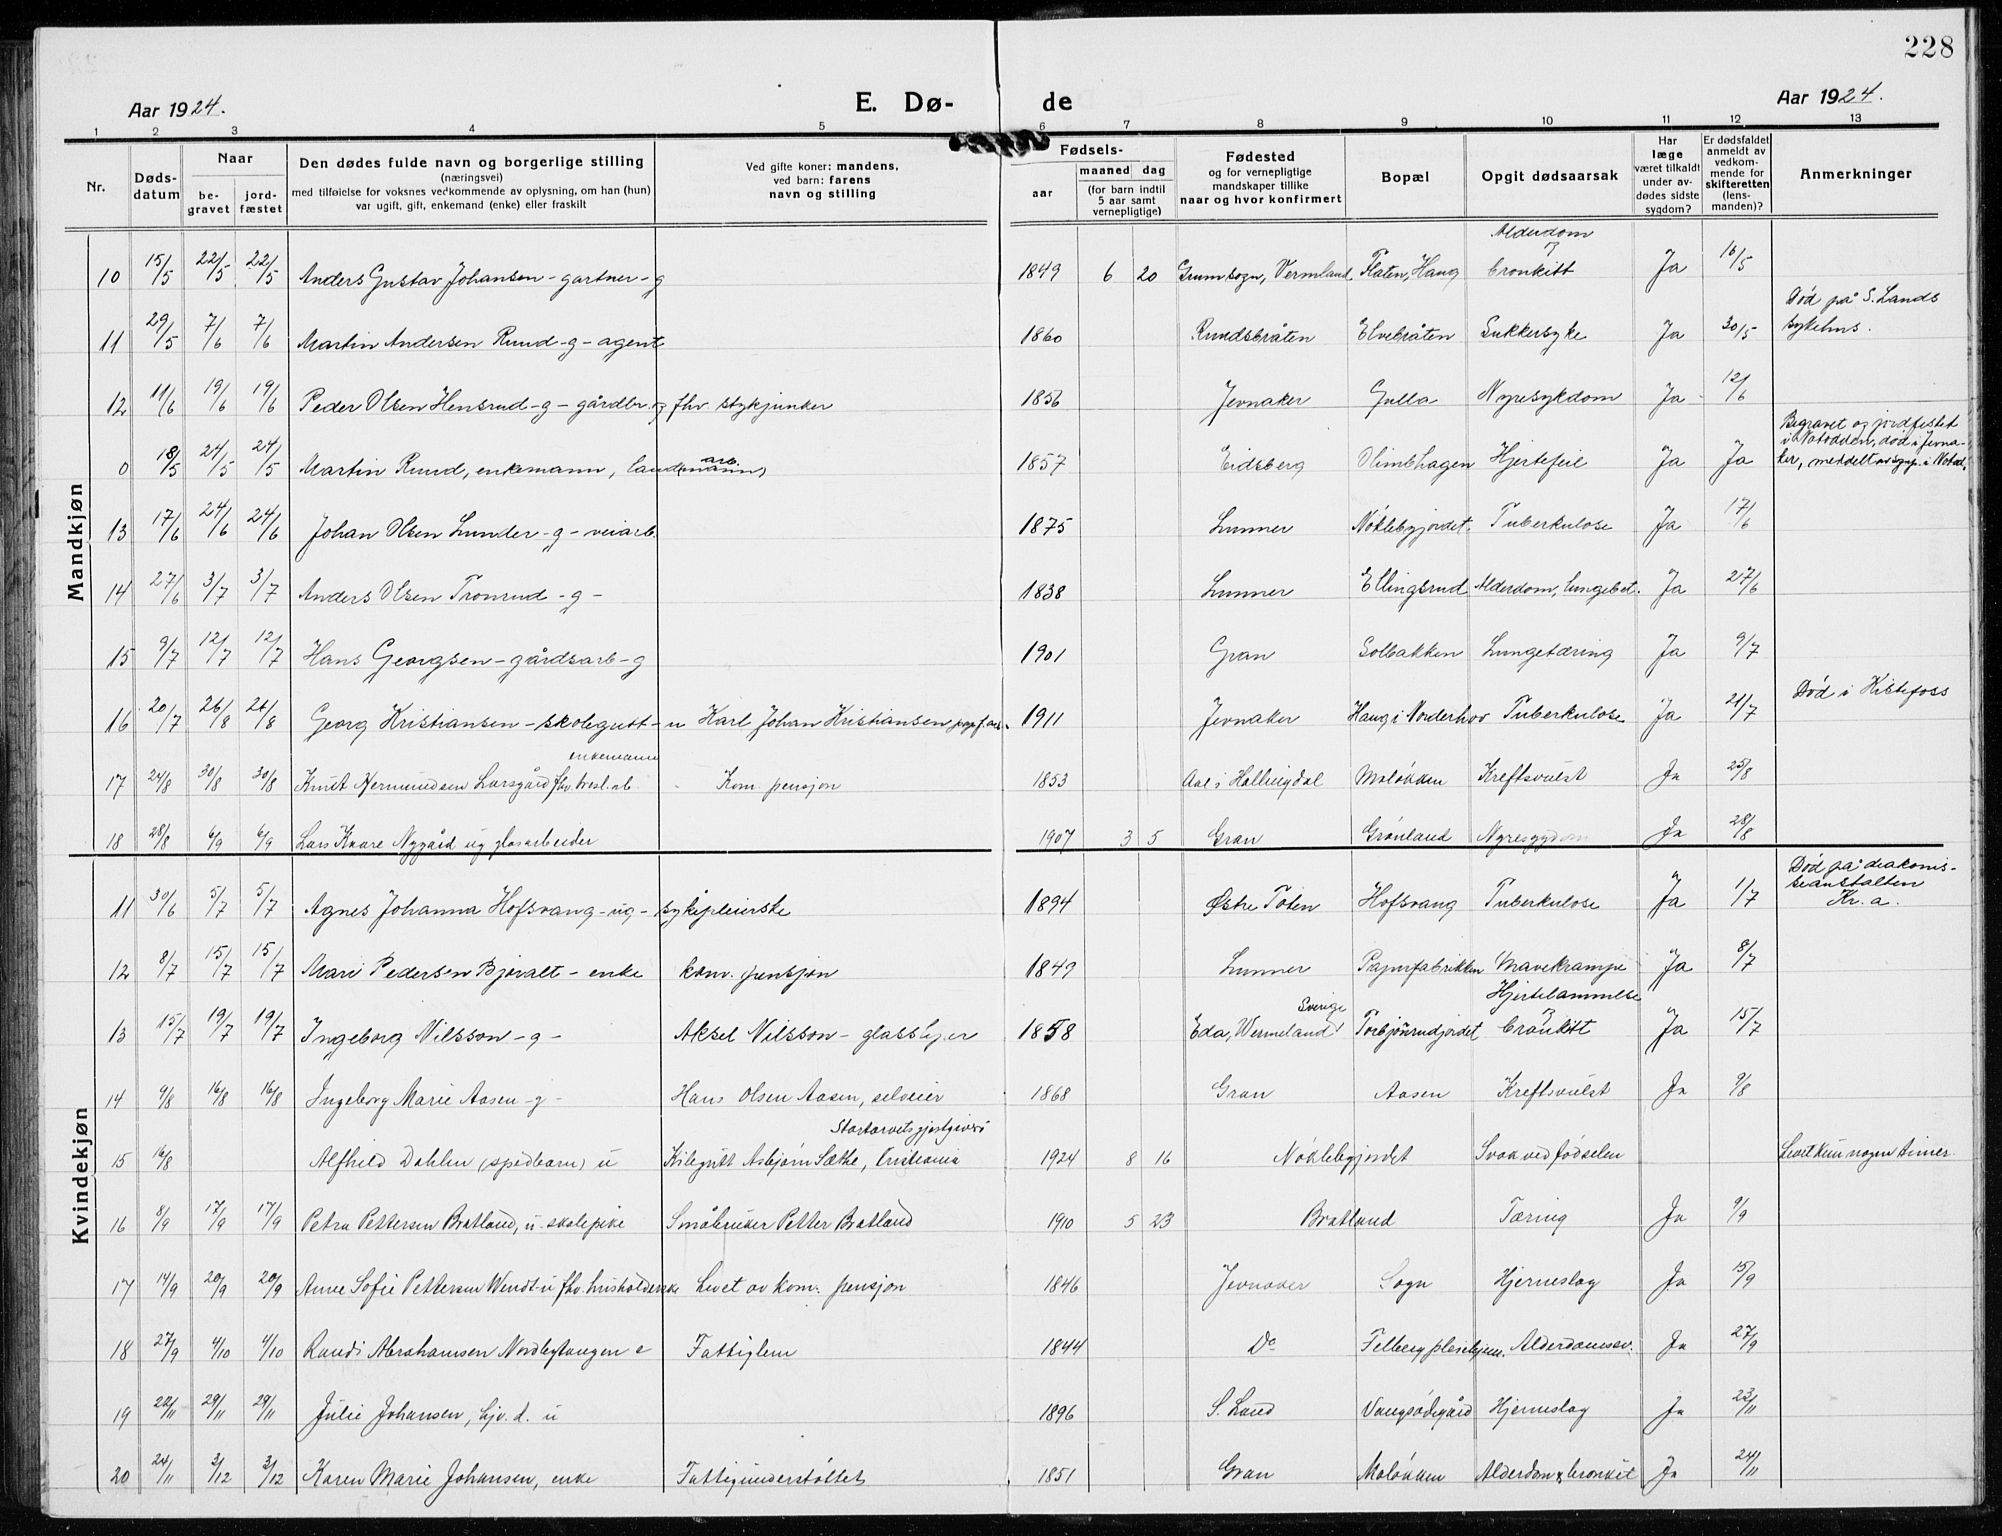 228
Aar 1924. E. Dø- de Aar 1924.
1 2 3 4 5 6 7 8 9 10 11 12 13
Nr. Dødsdatum Naar begravet jordfæstet
Den dødes fulde navn og borgerlige stilling
(næringsvei)
med tilføielse for voksnes vedkommende av oplysning, om han (hun)
var ugift, gift, enkemand (enke) eller fraskilt
Ved gifte koner: mandens,
ved barn: farens
navn og stilling
Fødsels-
aar maaned dag
(for barn indtil
5 aar samt
vernepligtige)
Fødested
og for vernepligtige
mandskaper tillike
naar og hvor konfirmert
Bopæl
Opgit dødsaarsak
Har
læge
været tilkaldt
under av-
dødes sidste
sygdom?
Er dødsfaldet
anmeldt av
vedkom-
mende for
skifteretten
(lens-
manden)?
Anmerkninger
Mandkjøn
10 15/5 22/5 22/5 Anders Gustav Johansen - gartner - g 1849 6 20 Grumsogn, Vermland Flaten, Haug Alderdom og bronkitt Ja 16/5
11 29/5 7/6 7/6 Martin Andersen Ruud - g - agent 1860 Ruudsbråten Elvebråten Sukkersyke Ja 30/5 Død på S. Lands sykehus.
12 11/6 19/6 19/6 Peder Olsen Hensrud - g - gårdbr. og fhv. stykjunker 1856 Jevnaker Gulla Nyresykdom Ja 12/6
0 18/5 24/5 24/5 Martin Ruud, enkemann, landmann arb. 1857 Eidsberg Olimbhagen Hjertefeil Ja Ja Begravet og jordfestet i Notodden, død i Jevnaker, meddelt av sognpr. i Notod.
13 17/6 24/6 24/6 Johan Olsen Lunder - g - veiarb 1875 Lunner Nøklebyjordet. Tuberkulose Ja 17/6
14 27/6 3/7 3/7 Anders Olsen Tronrud - g - 1838 Lunner Ellingsrud Alderdom, lungebet. Ja 27/6
15 9/7 12/7 12/7 Hans Georgsen - gårdsarb - g 1901 Gran Solbakken Lungetæring Ja 9/7
16 20/7 26/8 26/8 Georg Kristiansen - skolegutt - u Karl Johan Kristiansen papf. arb. 1911 Jevnaker Haug i Norderhov Tuberkulose Ja 21/7 Død i Kistefoss
17 24/8 30/8 30/8 Knut Hermundsen Larsgård fhv. bresl. arb. enkemann Kom. pensjon 1853 Aal i Hallingdal Moløkken Kreftsvulst Ja 25/8
18 28/8 6/9 6/9 Lars Kaare Nygård ug glasarbeider 1907 3 5 Gran Grønland Nyresygdom Ja 28/8
Kvindekjøn
11 30/6 5/7 5/7 Agnes Johanna Hofsvang - ug - sykepleierske 1894 Østre Toten Hofsvang Tuberkulose Ja 1/7 Død på diakonisseanstalten Kr.a.
12 8/7 15/7 15/7 Mari Pedersen Bjøralt - enke kom. pensjon 1849 Lunner Papirfabrikken Mavekrampe Ja 8/7
13 15/7 19/7 19/7 Ingeborg Nilsson - g - Aksel Nilsson - glassliper 1858 Eda, Wermeland Sverige Torbjørnrudjordet Hjertelammelse og bronkitt Ja 15/7
14 9/8 16/8 16/8 Ingeborg Marie Aasen - g - Hans Olsen Aasen, selveier 1868 Gran Aasen Kreftsvulst Ja 9/8
15 16/8 Alfhild Dahlen (spedbarn) u Asbjørn Sæthe, Cristiania 1924 8 16 Nøklebyjordet Svak ved fødselen Levet kun nogen timer.
16 8/9 17/9 17/9 Petra Pettersen Bratland, u. skolepike Småbruker Petter Bratland 1910 5 23 Bratland Tæring Ja 9/9
17 14/9 20/9 20/9 Anne Sofie Pettersen Wendt - u fhv. husholderske Levet av kom. pensjon 1846 Jevnaker Sogn Hjerneslag Ja 15/9
18 27/9 4/10 4/10 Randi Abrahamsen Nordbytangen e Fattiglem 1844 Do Felberg pleiehjem. Alderdomssv. Ja 27/9
19 22/11 29/11 29/11 Julie Johansen, hjv. d. u 1896 S. Land Vangsødegård Hjerneslag Ja 23/11
20 24/11 3/12 3/12 Karen Marie Johansen, enke Fattigunderstøttet 1851 Gran Moløkken Alderdom & bronkit Ja 24/11